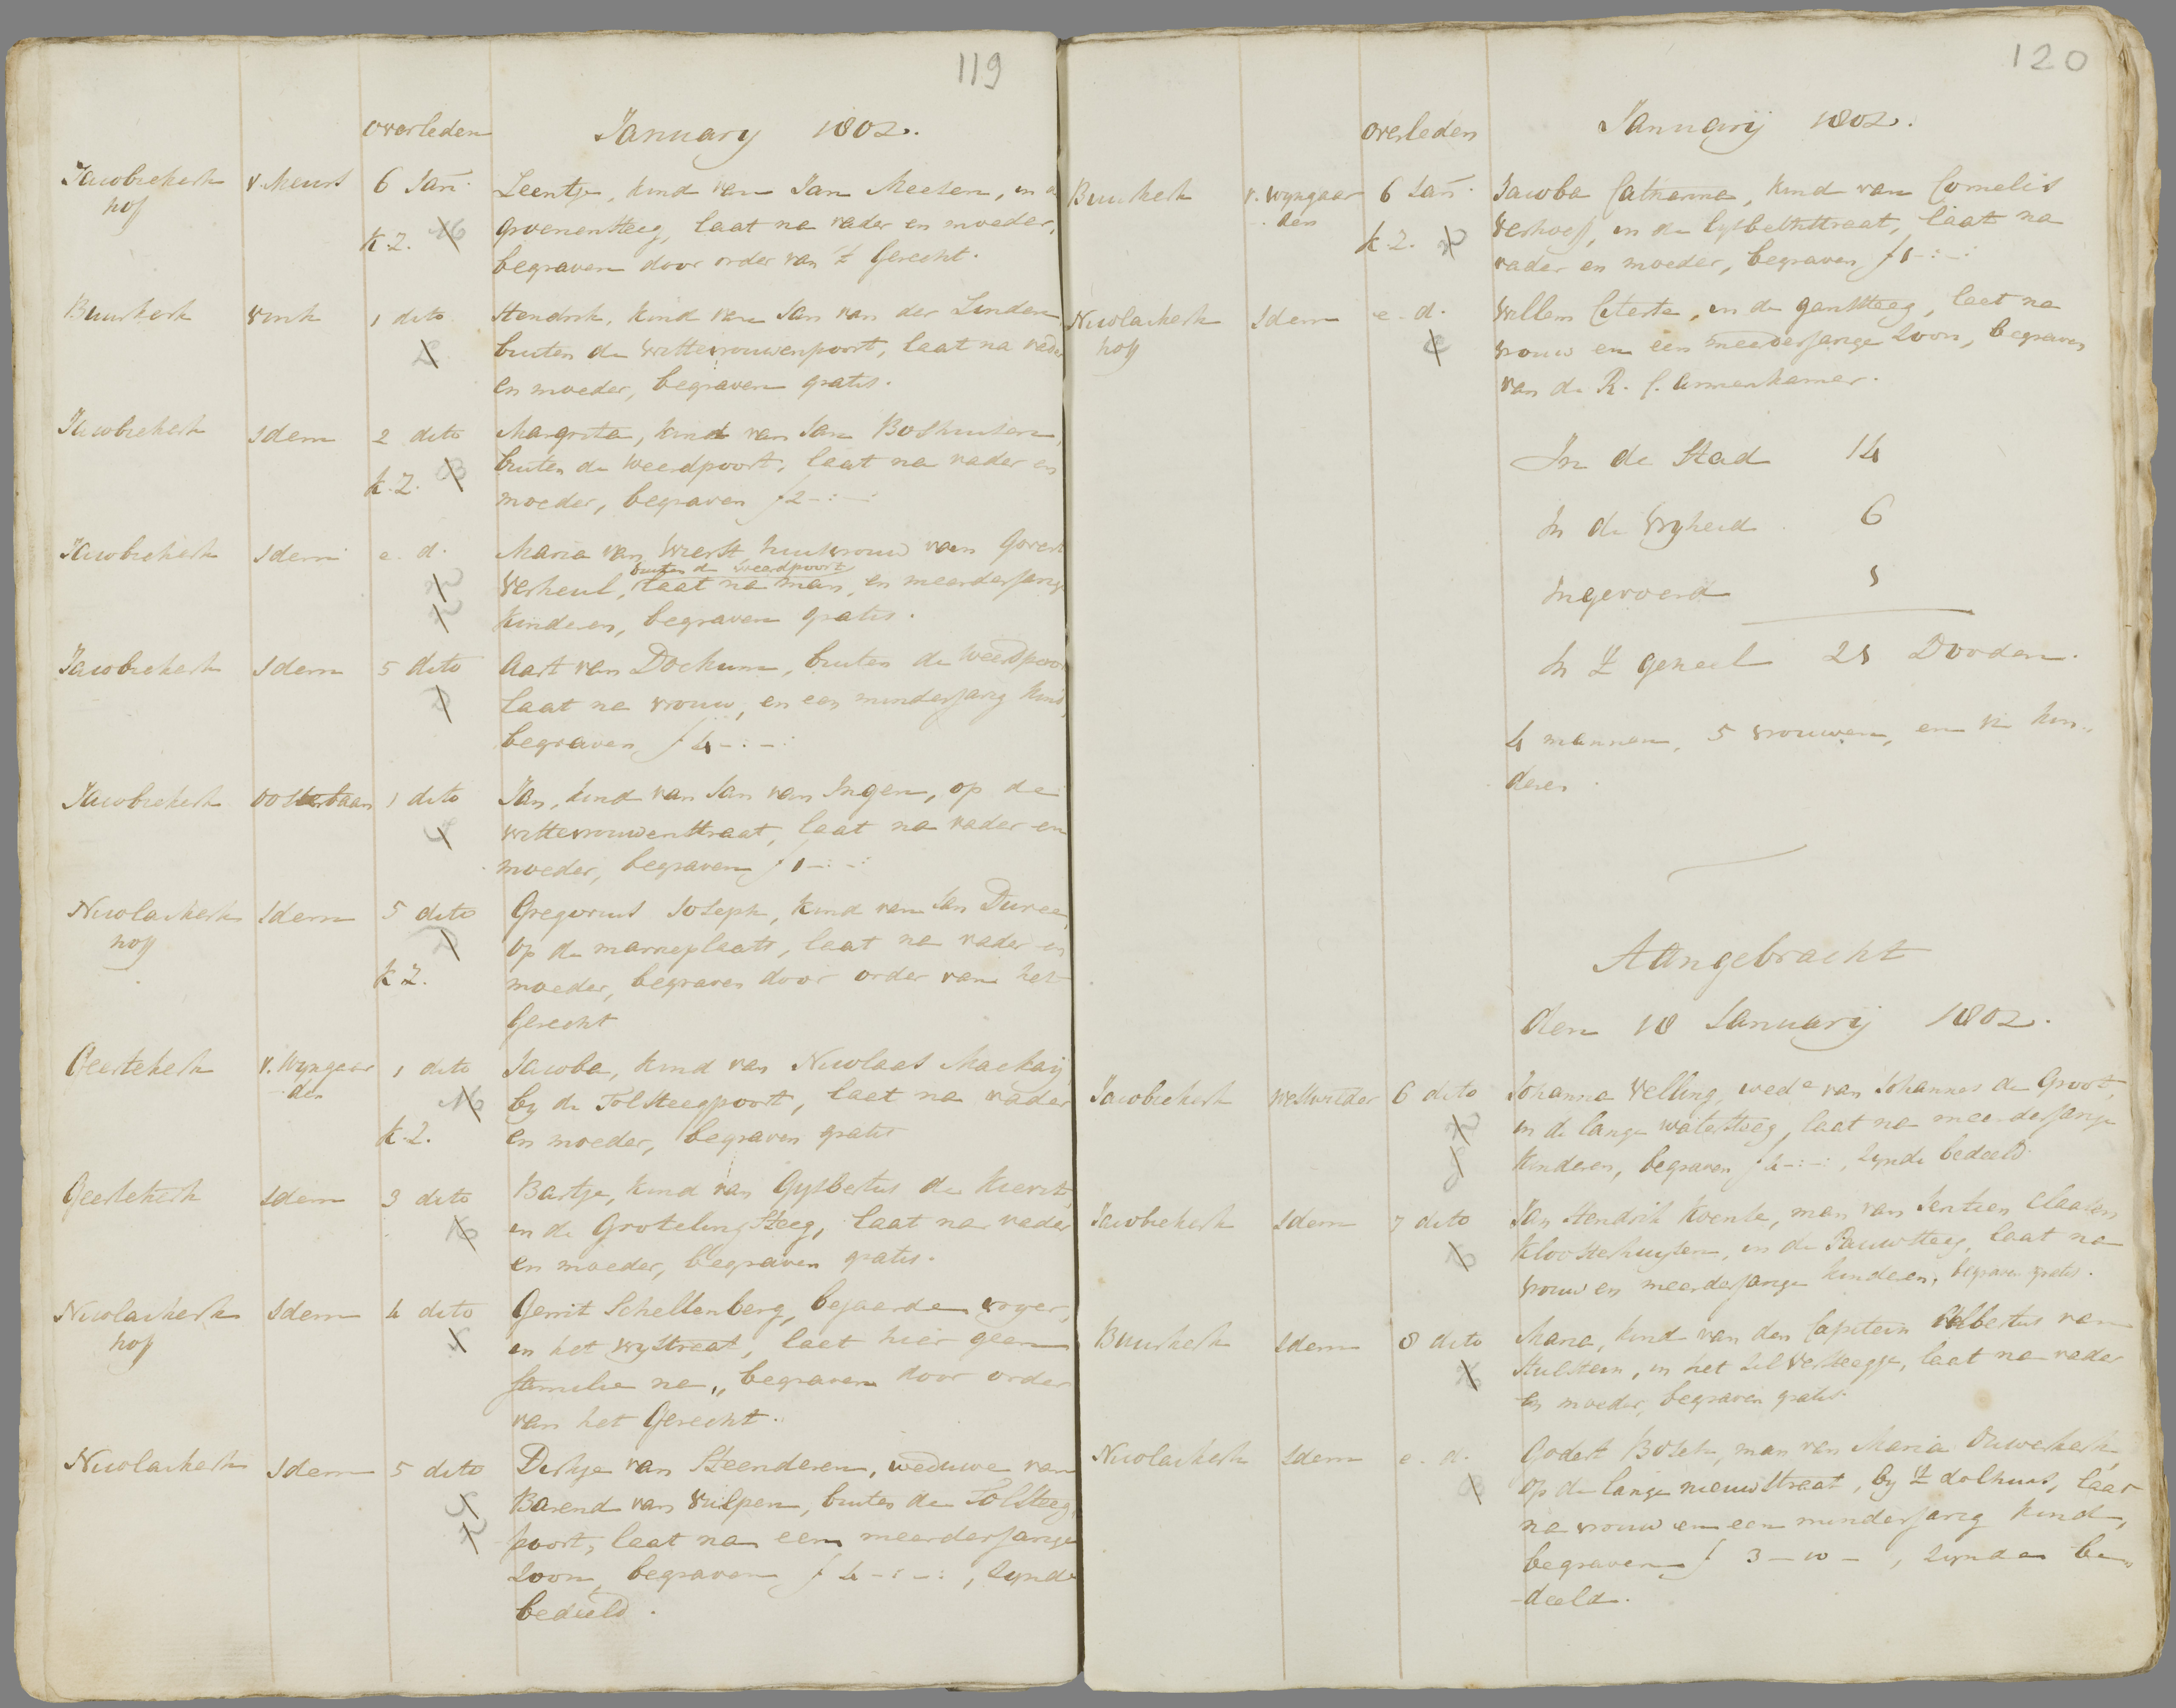 119
overleden January 1802.
Jacobiekerk v. Meurs 6 Jan. Leentje, kind van Jan Meesen, in de
hof Groenensteeg, laat na vader en moeder,
K.Z. begraven door order van 't Gerecht.
Buurkerk Vink 1 dito Hendrik, kind van Jan van der Linden
buiten de Wittevrouwenpoort, laat na vader
en moeder, begraven gratis.
Jacobiekerk Idem 2 dito Margrita, kind van Jan Boshuisen,
buiten de Weerdpoort, laat na vader en
K.Z. moeder, begraven f 2-:-:
Jacobiekerk Idem e. d. Maria van Wierst huisvrouw van Govert
buiten de weerdpoort
Verheul, laat na man, en meerderjarige
kinderen, begraven gratis.
Jacobiekerk Idem 5 dito Aart van Dockum, buiten de Weerdpoort
laat na vrouw, en een minderjarig kind,
begraven f 4-:-:
Jacobiekerk Oosterbaan 1 dito Jan, kind van Jan van Ingen, op de
Wittevrouwenstraat, laat na vader en
moeder, begraven f 1-:-:
Nicolaikerk Idem 5 dito Gregorius Joseph, kind van Jan Duree,
hoff op de marieplaats, laat na vader en
K.Z. moeder, begraven door order van het
Gerecht
Geertekerk v. Wyngaar 1 dito Jacoba, kind van Nicolaas Mackaij,
den by de Tolsteegpoort, laat na vader
K.Z. en moeder, begraven gratis
Geertekerk Idem 3 dito Bartje, kind van Gysbertus de Kievit,
in de Groteling Steeg, laat na vader
en moeder, begraven gratis.
Nicolaikerk Idem 4 dito Gerrit Schellenberg, bejaarde vryer,
hoff in het vrystraat, laet hier geen
familie na, begraven door order
van het Gerecht.
Nicolaikerk Idem 5 dito Dirkje van Steenderen, weduwe van
Barend van Vulpen, buiten de Tolsteeg
poort, laat na een meerderjarige
Zoon, begraven f 4-:-:, zynde
bedeeld.
120
overleden Januarij 1802.
Buurkerk v. Wyngaar 6 Jan. Jacoba Catharina, kind van Cornelis
den Verhoef, in de Lysbethstraat, laat na
K.Z. vader en moeder, begraven f 1-:-:
Nicolaikerk Idem e. d. Willem Citerte, in de gansteeg, laet na
hoff vrouw en een meerderjarige Zoon, begraven
van de R. C. armenkamer.
In de Stad 14
In de Vryheid 6
Ingevoerd 1
In 't geheel 21 Dooden.
4 mannen, 5 vrouwen, en 12 kin-
deren.
Aangebracht
den 18 Januarij 1802.
Jacobiekerk Westwieder 6 dito Johanna Velling, wede van Johannes de Groot,
in de lange watersteeg, laat na meerderjarige
kinderen, begraven f 4-:-:, zynde bedeeld
Jacobiekerk Idem 7 dito Jan Hendrik Kvente, man van Jentien Claasen
Kloosterhuysen, in de Pauwsteeg, laat na
vrouw en meerderjarige kinderen, begraven gratis.
Buurkerk Idem 8 dito Maria, kind van den Capitein Albertus van
Stulstein, in het Silversteegje, laat na vader
en moeder, begraven gratis.
Nicolaikerk Idem e. d. Godert Bosch, man van Maria Ouwerkerk,
op de lange nieuwstraat, by 't dolhuis, laat
na vrouw en een minderjarig kind,
begraven f 3-10-, zynde be-
deeld.